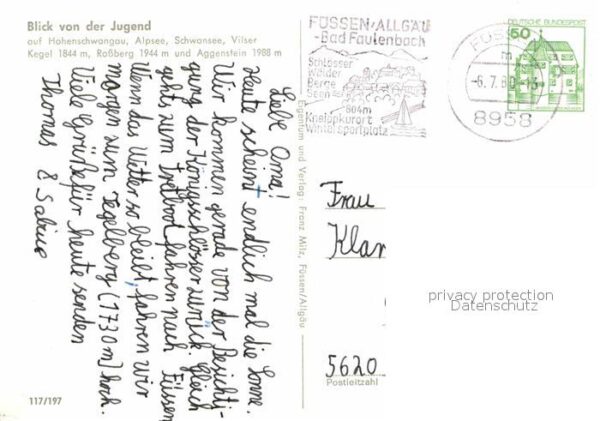 Blick von der Jugend
auf Hohenschwangau, Alpsee, Schwansee, Vilser
Kegel 1844 m, Roßberg 1944 m und Aggenstein 1988 m
Liebe Oma!
Heute scheint endlich mal die Sonne.
Wir kommen gerade von der Besichti-
gung der Königsschlösser zurück. Gleich
geht's zum Festbrot fahren nach Füssen
Wenn das Wetter so bleibt, fahren wir
morgen zum Tegelberg (1730 m) hoch.
Viele Grüße für heute senden
Thomas & Sabine
117/197
Eigentum und Verlag: Franz Milz, Füssen/Allgäu
FÜSSEN/ALLGÄU
-Bad Faulenbach
Schlösser
Wälder
Berge
Seen
804m
Kneippkurort
Wintersportplatz
FÜSSEN
m
-6.7.80-15
8958
50
DEUTSCHE BUNDESPOST
Frau
Klar
privacy protection
Datenschutz
5620
Postleitzahl